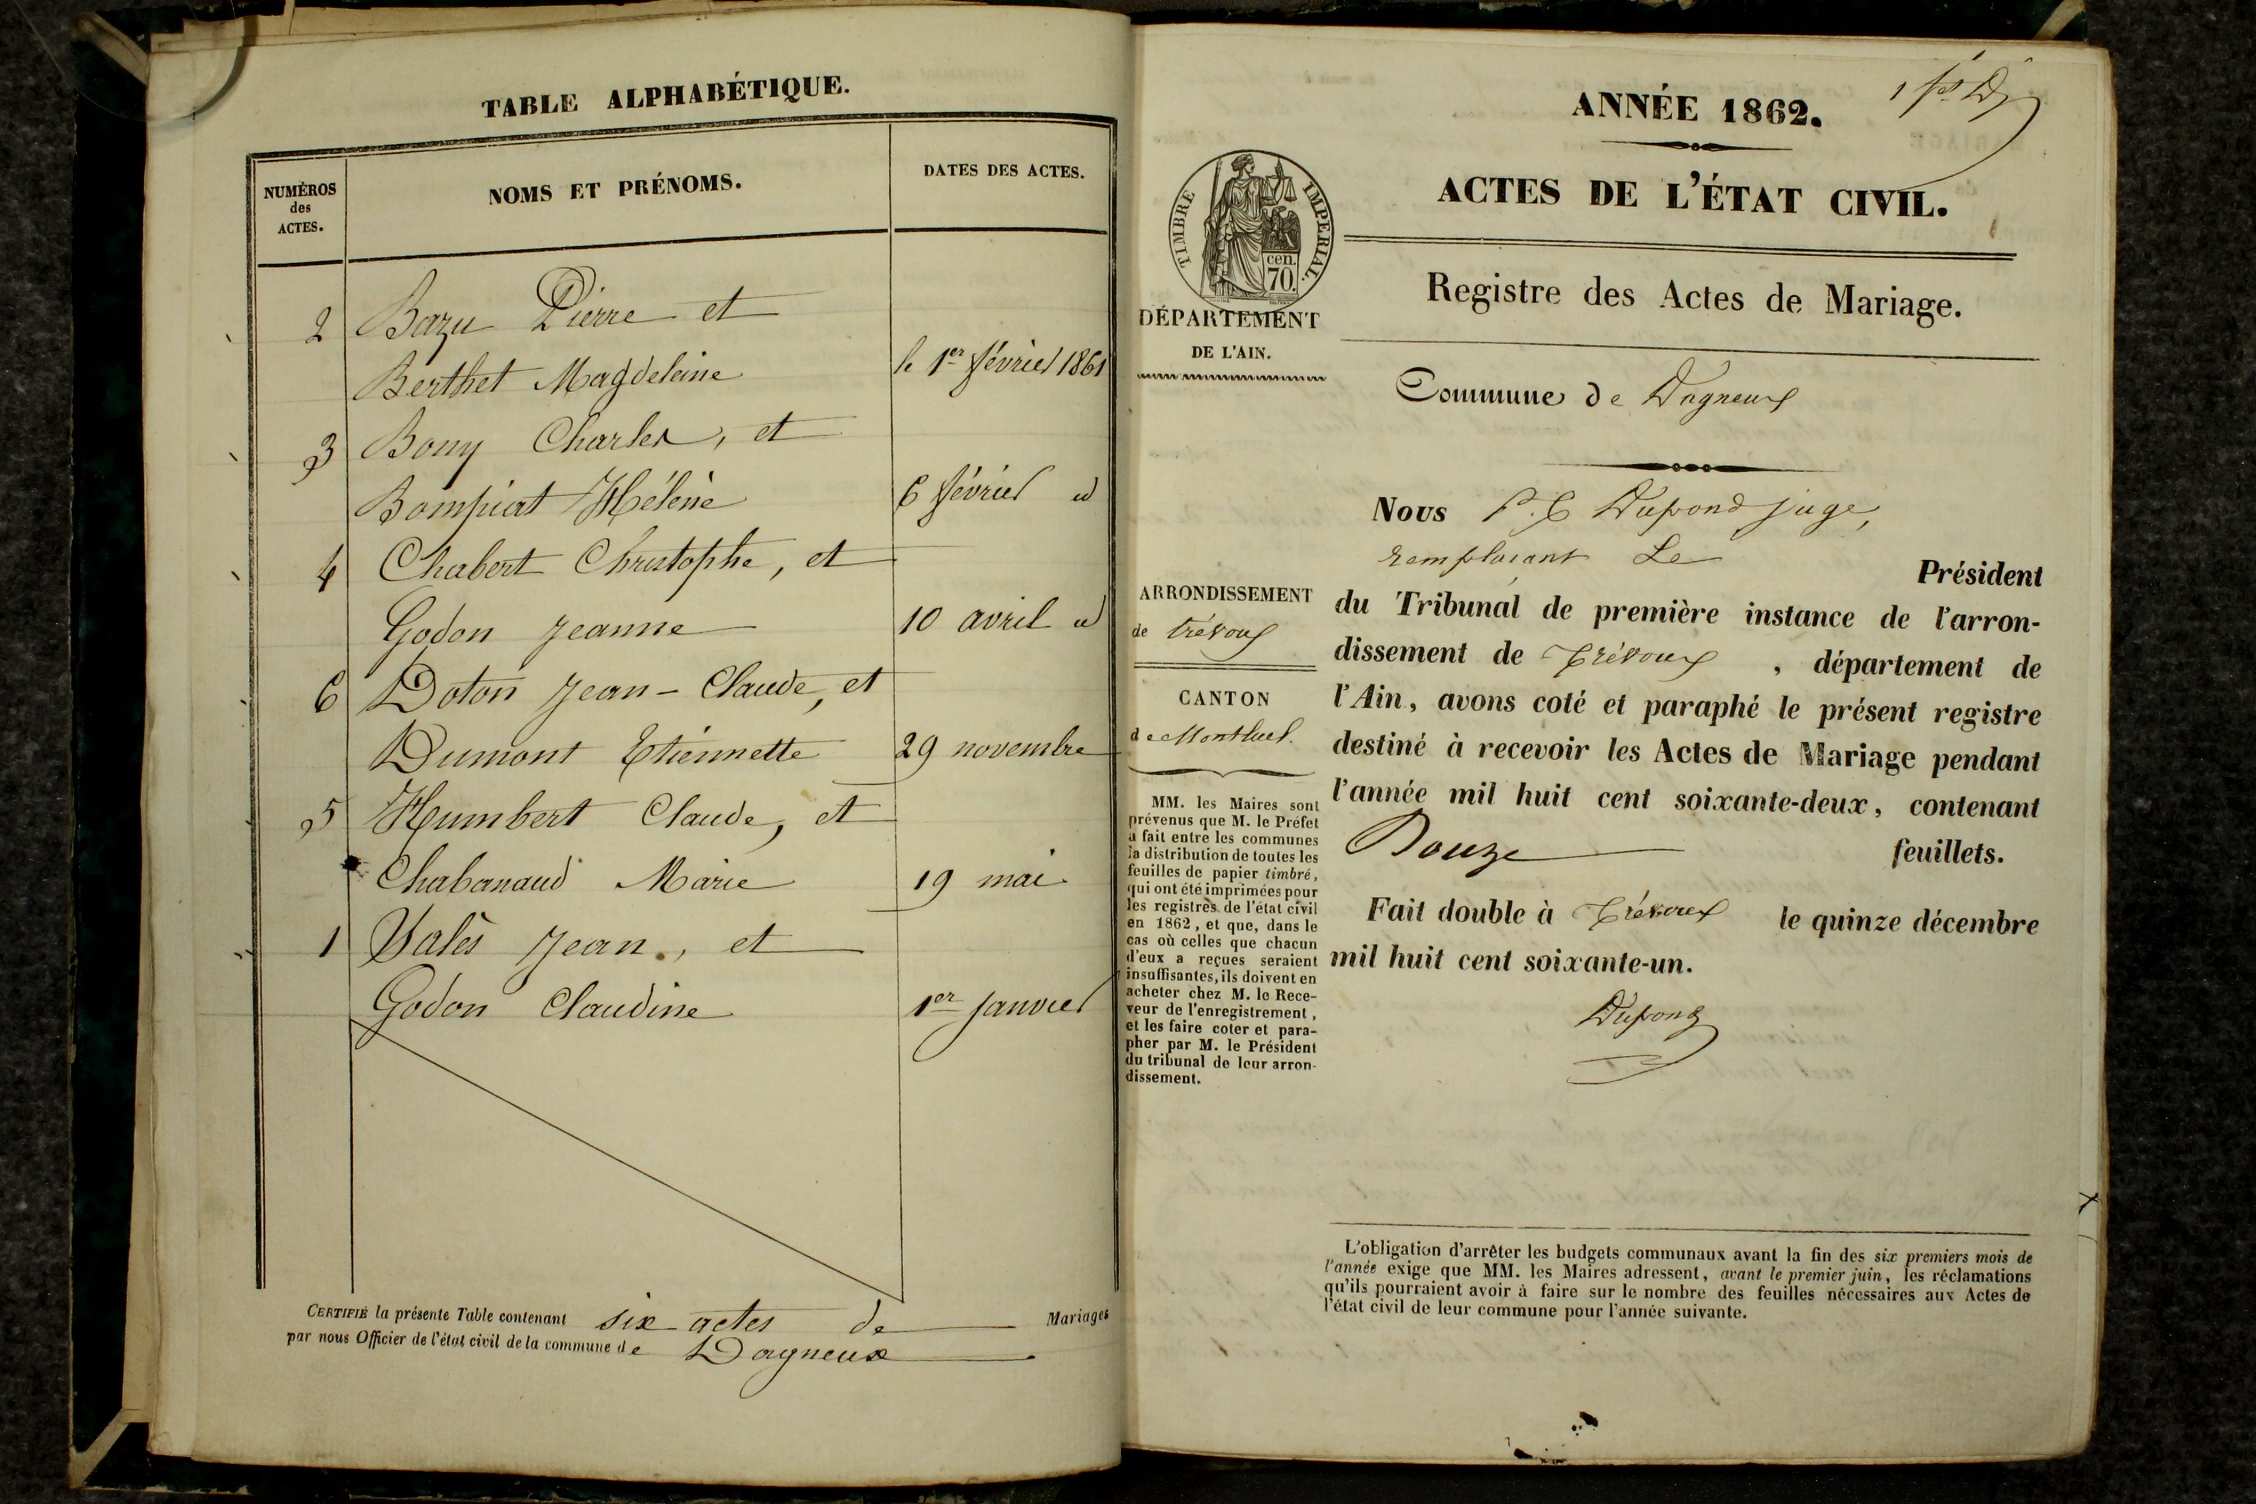 TABLE ALPHABÉTIQUE.
NUMÉROS
des
ACTES.
NOMS ET PRÉNOMS.
DATES DES ACTES.
2 Bazu Pierre et
Berthet Magdeleine le 1er février 1861
3 Bony Charles, et
Bompiat Hélène 6 février id
4 Chabert Christophe, et
Godon Jeanne 10 avril id
6 Doton Jean-Claude, et
Dumont Etiennette 29 novembre
5 Humbert Claude, et
Chabanaud Marie 19 mai
1 Valès Jean, et
Godon Claudine 1er janvier
CERTIFIÉ la présente Table contenant six actes de Mariages
par nous Officier de l'état civil de la commune de Dagneux
ANNÉE 1862.
ACTES DE L'ÉTAT CIVIL.
TIMBRE IMPÉRIAL.
cen.
70.
DÉPARTEMENT
DE L'AIN.
Registre des Actes de Mariage.
Commune de Dagneux
Nous P. C Dupond juge,
remplacant Le Président
du Tribunal de première instance de l'arron-
dissement de Trévoux, département de
l'Ain, avons coté et paraphé le présent registre
destiné à recevoir les Actes de Mariage pendant
l'année mil huit cent soixante-deux, contenant
Douze feuillets.
Fait double à Trévoux le quinze décembre
mil huit cent soixante-un.
Dupond
ARRONDISSEMENT
de trévoux
CANTON
de Montluel.
MM. les Maires sont
prévenus que M. le Préfet
a fait entre les communes
la distribution de toutes les
feuilles de papier timbré,
qui ont été imprimées pour
les registres de l'état civil
en 1862, et que, dans le
cas où celles que chacun
d'eux a reçues seraient
insuffisantes, ils doivent en
acheter chez M. le Rece-
veur de l'enregistrement,
et les faire coter et para-
pher par M. le Président
du tribunal de leur arron-
dissement.
L'obligation d'arrêter les budgets communaux avant la fin des six premiers mois de
l'année exige que MM. les Maires adressent, avant le premier juin, les réclamations
qu'ils pourraient avoir à faire sur le nombre des feuilles nécessaires aux Actes de
l'état civil de leur commune pour l'année suivante.